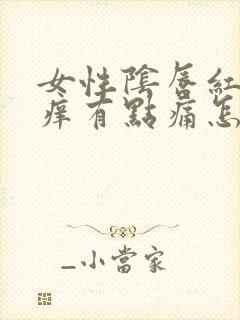 女性陰唇紅
痒有點痛怎
_小當家